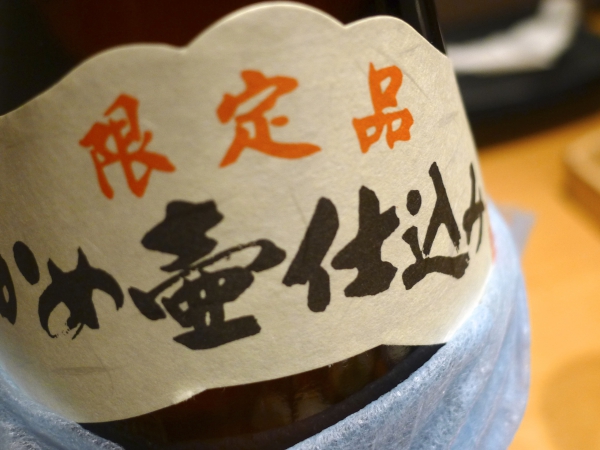 限定品
かめ壷仕込み